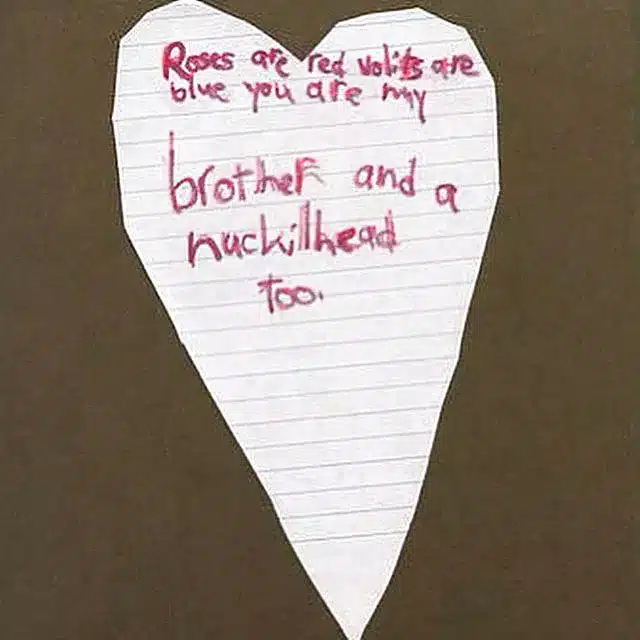 Roses are red volits are
blue you are my
brother and a
nuckillhead
too.